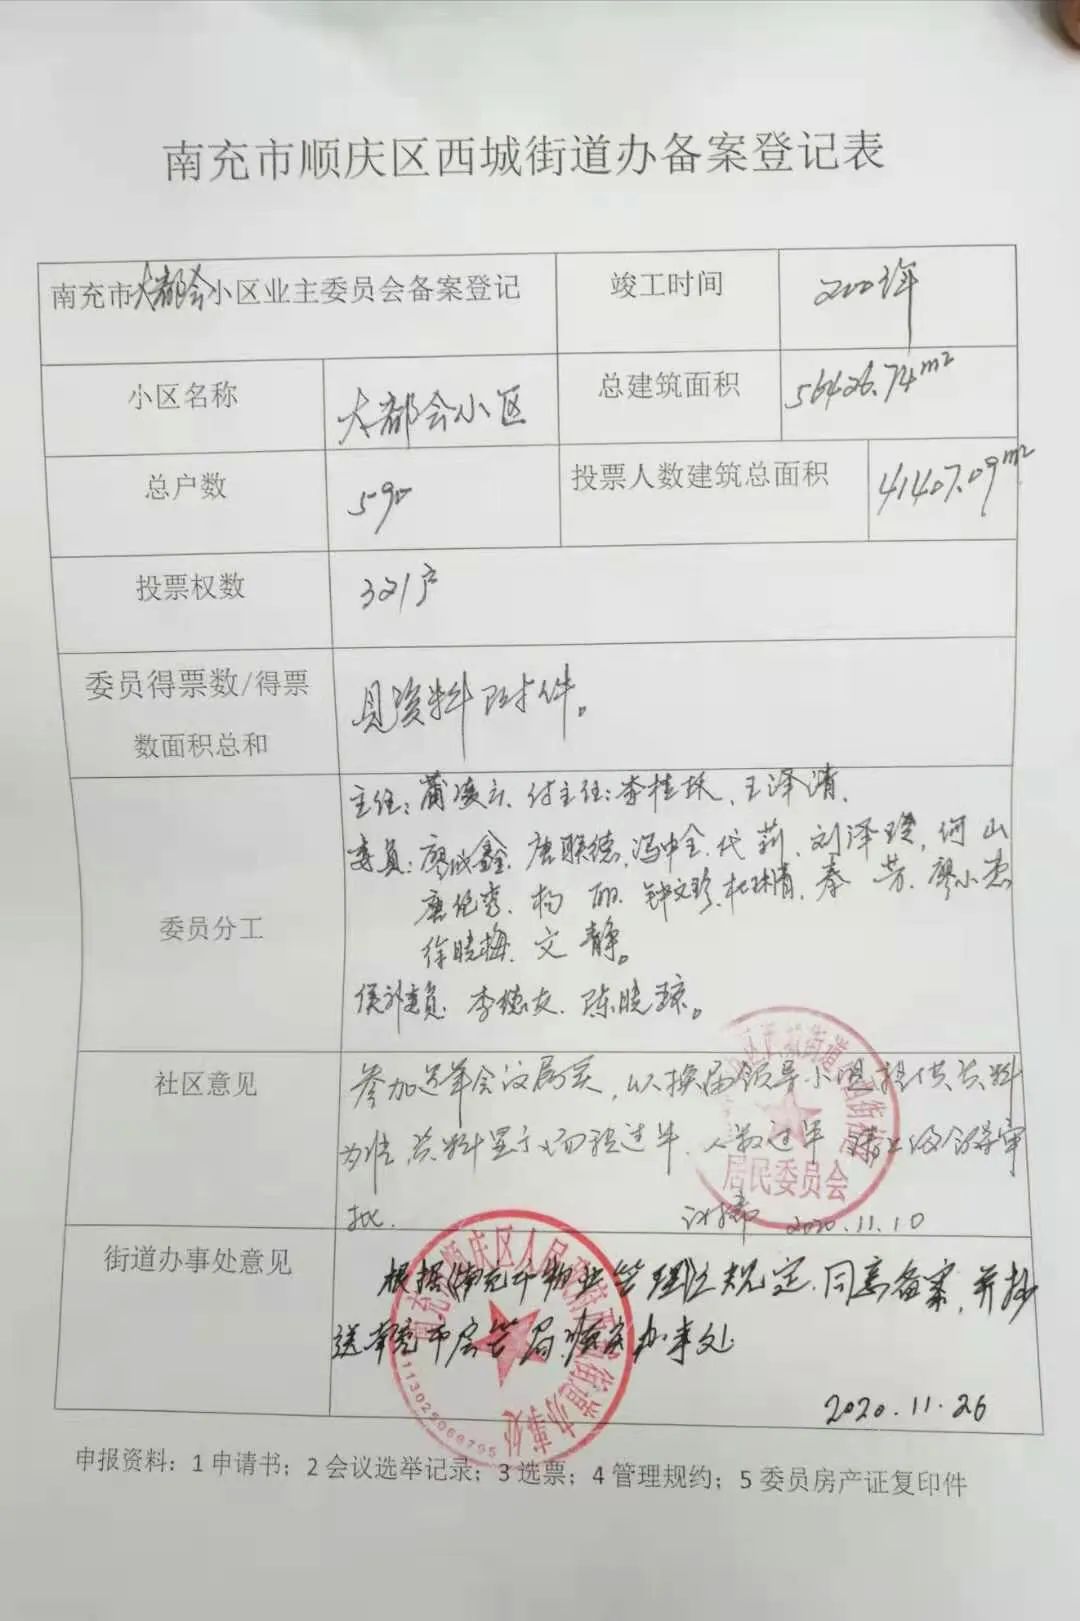 南充市顺庆区西城街道办备案登记表
南充市大都会小区业主委员会备案登记
竣工时间
2001年
小区名称
大都会小区
总建筑面积
56426.74m²
总户数
590
投票人数建筑总面积
41407.09m²
投票权数
321户
委员得票数/得票
数面积总和
见资料附件。
委员分工
主任:蒲凌云.付主任:李桂林、王泽清.
委员:廖成鑫.唐联德,冯中全.代莉.刘泽琼,何山
唐纪秀.杨丽.钟文珍.杜琳清,秦芳.廖小忠
徐晓梅.文静。
侯补委员:李德友.陈晓琼。
社区意见
参加过半会议属实,以换届领导小组提供资料
为准,资料显示面积过半.人数过半 请上级领导审
批. 2020.11.10
居民委员会
街道办事处意见
根据《南充市物业管理》之规定.同意备案,并抄
送南充市房管局.顺庆办事处
2020.11.26
申报资料:1申请书;2会议选举记录;3选票;4管理规约;5委员房产证复印件